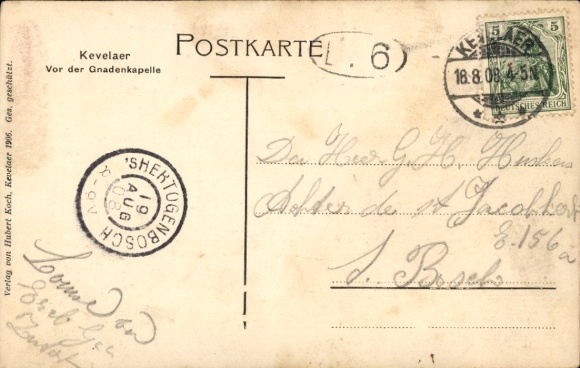 Kevelaer
Vor der Gnadenkapelle
POSTKARTE
L. 6
KEVELAER
18.8.08.4-5N
5 5
DEUTSCHES REICH
'SHERTOGENBOSCH
19
AUG
08
8-9V
Den Heer G. H.
Achter de st Jacobkerk
E.156a
S. Bosch
Verlag von Hubert Koch, Kevelaer 1906. Ges. geschützt.